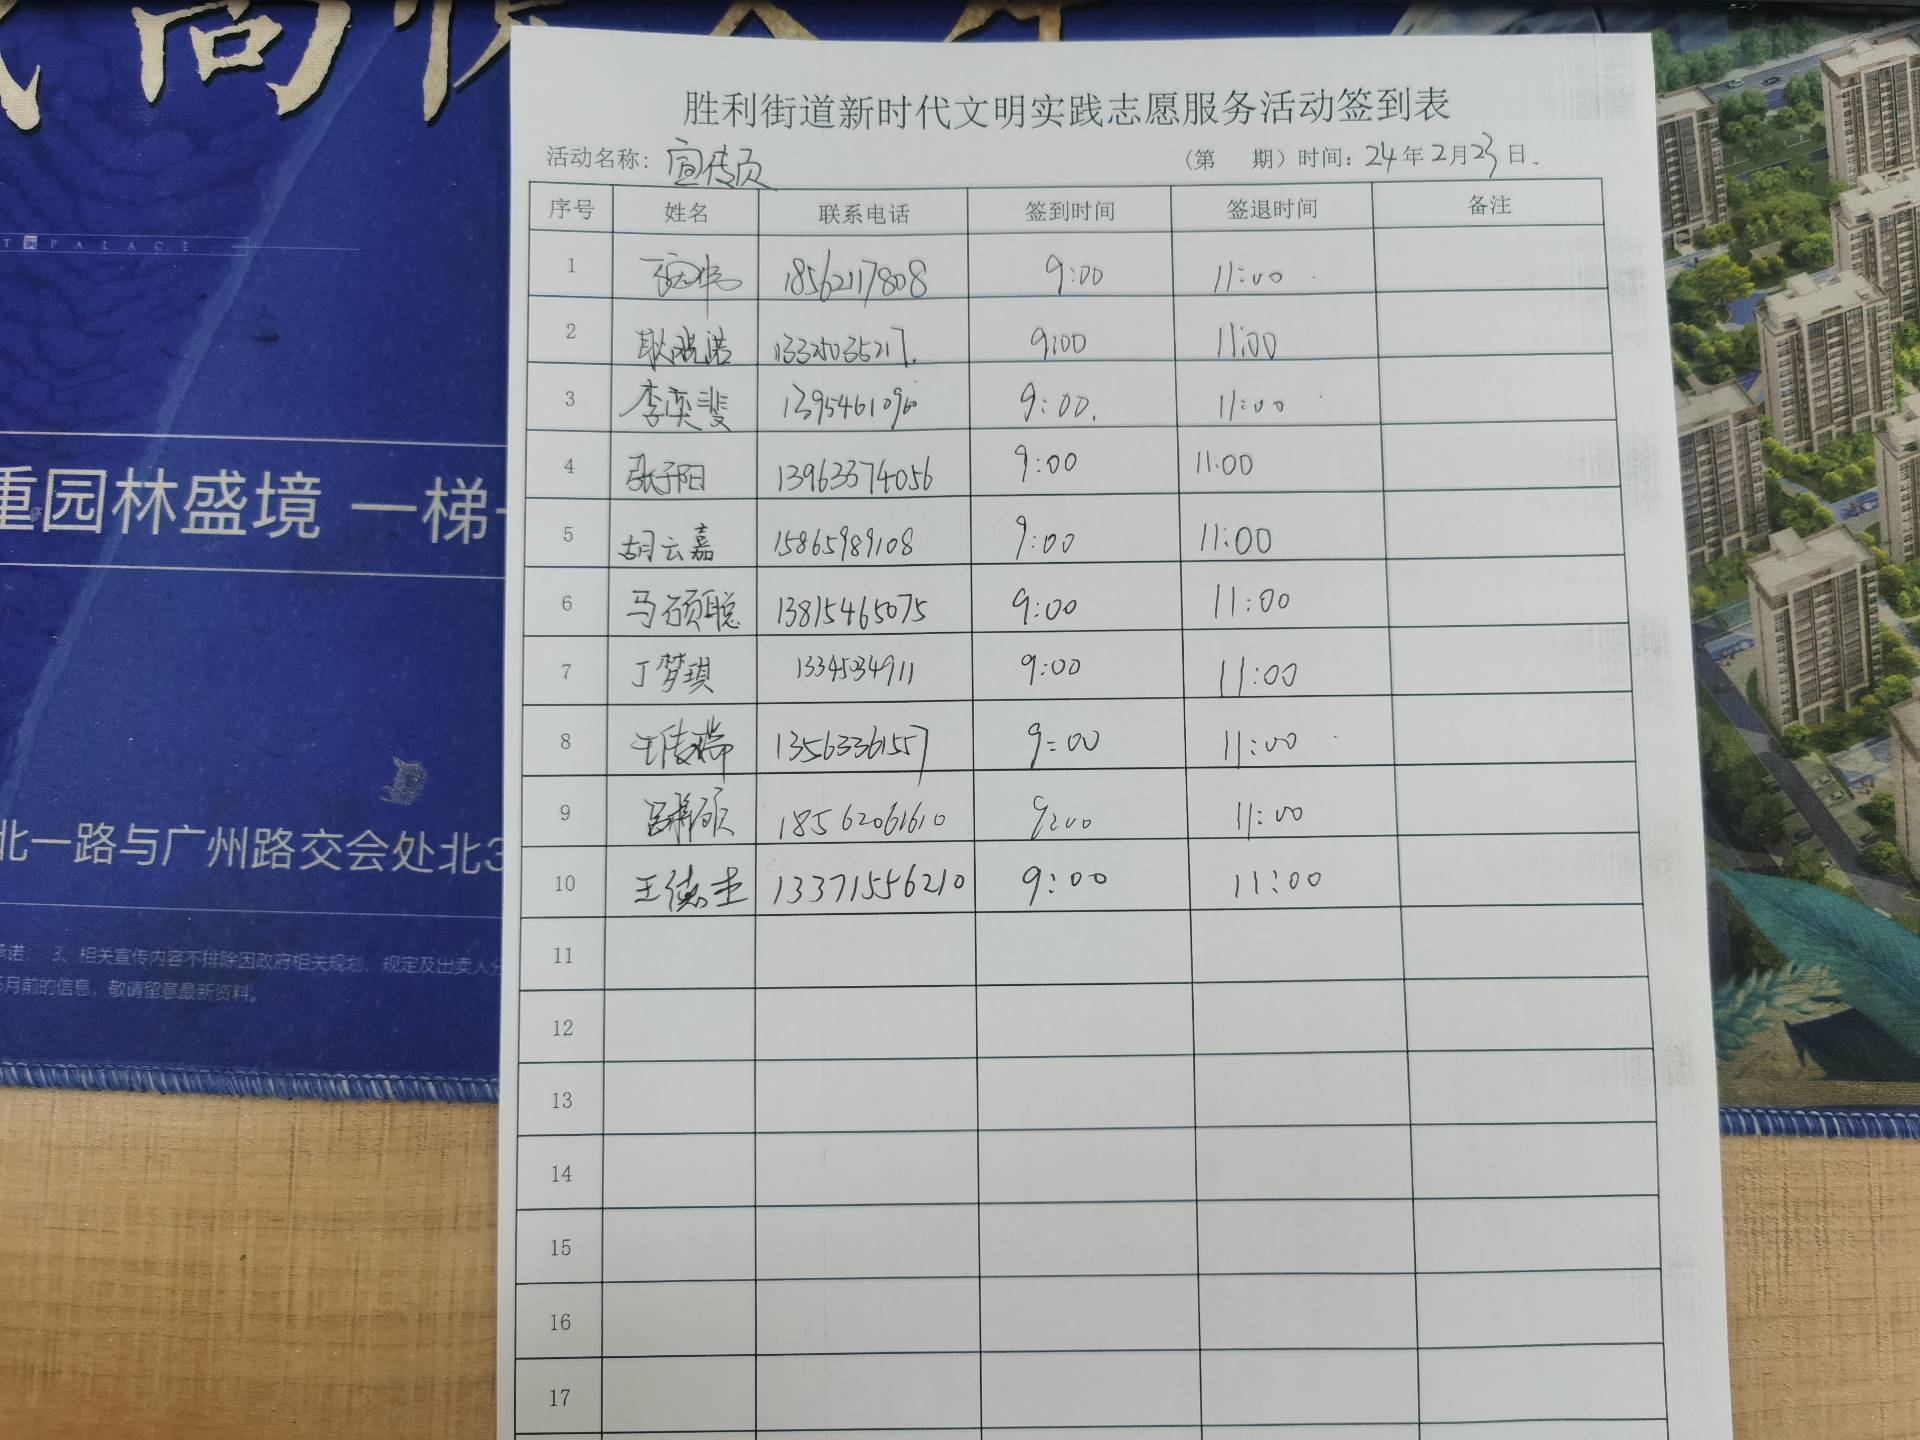 PALACE
重园林盛境 一梯
北一路与广州路交会处北3
承诺： 3、相关宣传内容不排除因政府相关规划、规定及出卖人分
5月前的信息，敬请留意最新资料。
胜利街道新时代文明实践志愿服务活动签到表
活动名称：宣传页 （第 期）时间：24年2月23日.
序号 姓名 联系电话 签到时间 签退时间 备注
1 18562117808 9:00 11:00
2 13325035217. 9:00 11:00
3 李奕斐 1395461096 9:00. 11:00
4 张子阳 13963374056 9:00 11:00
5 胡云嘉 15865989108 9:00 11:00
6 马硕聪 13815465075 9:00 11:00
7 丁梦琪 1334534911 9:00 11:00
8 13563361557 9:00 11:00
9 18562061610 9:00 11:00
10 王德圭 13371556210 9:00 11:00
11
12
13
14
15
16
17